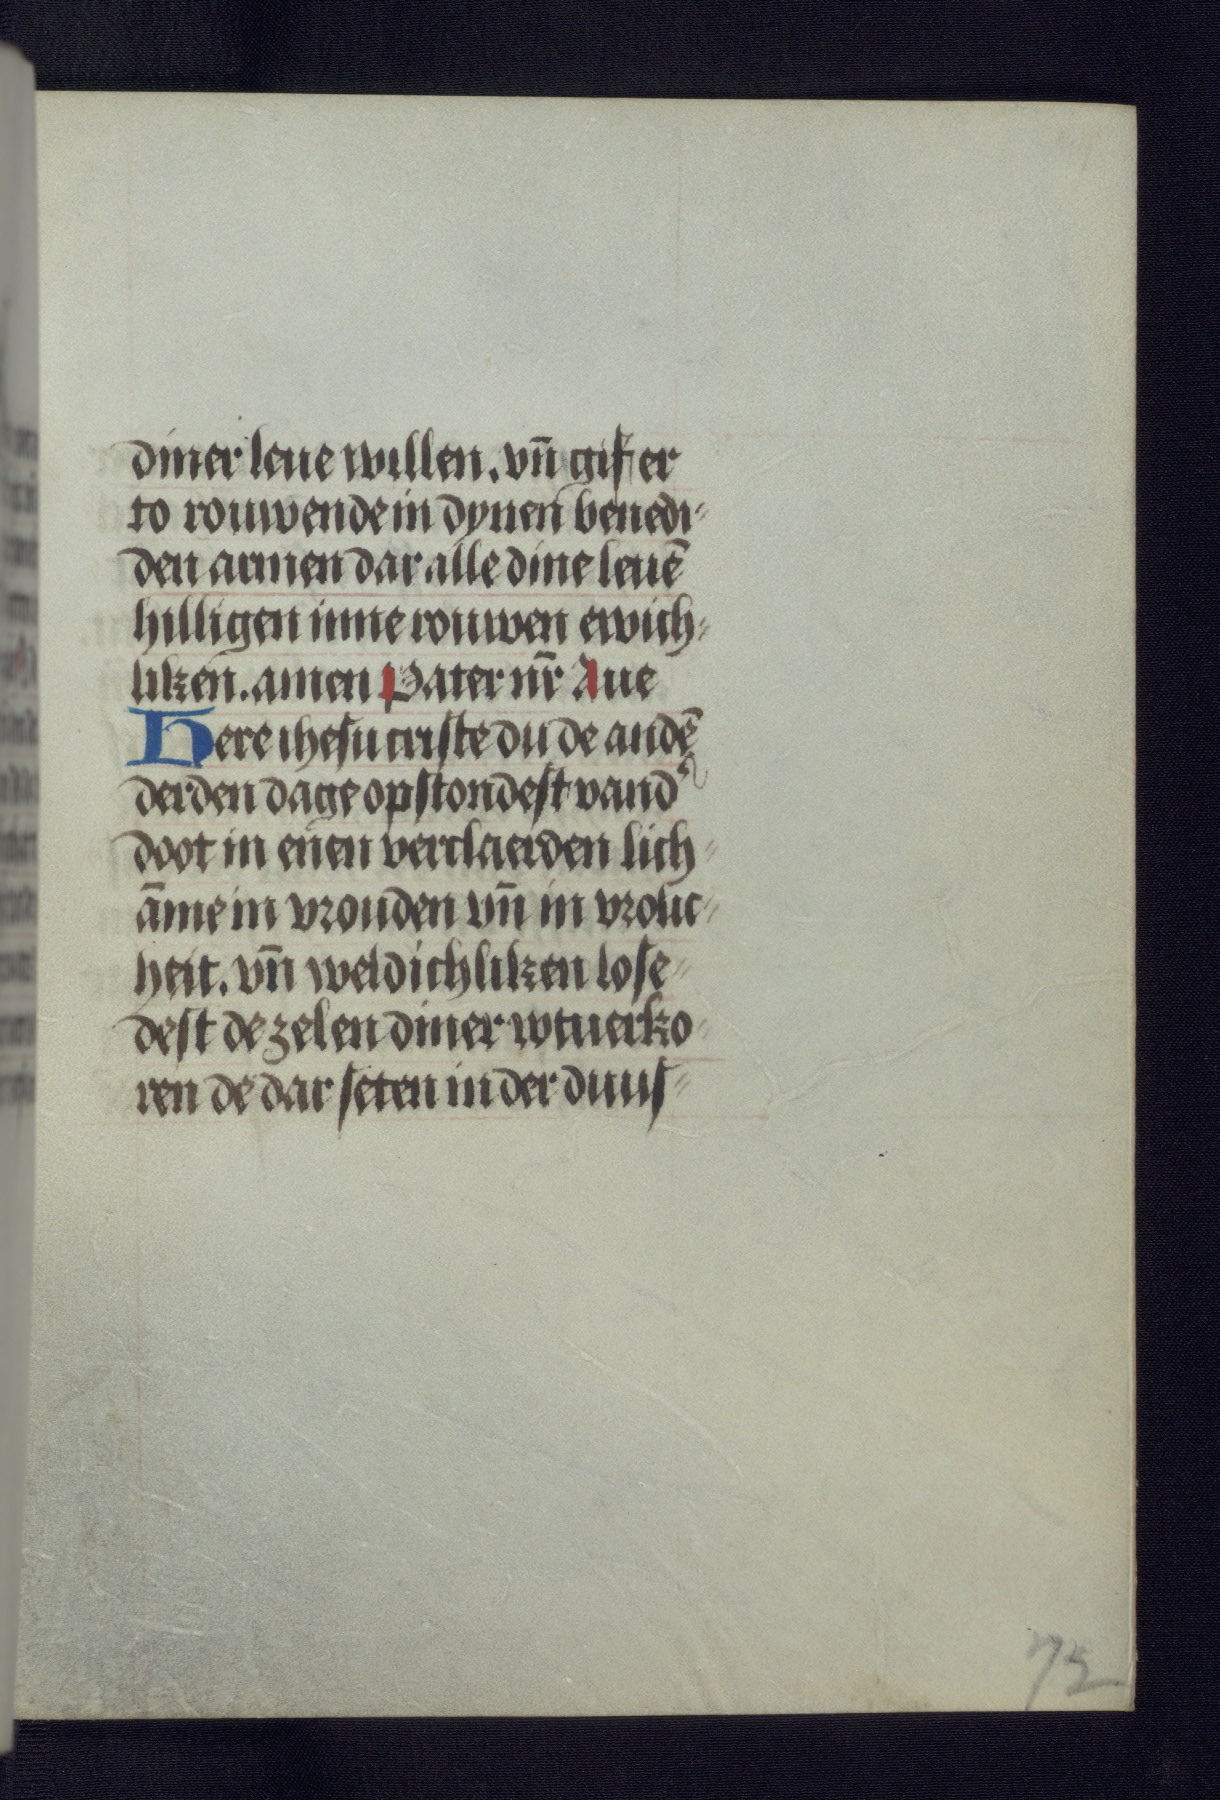 diner leue willen. vn̄ gif er
to rouwende in dynen benedi⸗
den armen dar alle dine leuē
hilligen inne rouwen ewich⸗
liken. amen Pater nr̄ Aue
Here ihesu criste du de an dē
derden dage op stondest van dʼ
doot in enen verclaerden lich⸗
āme in vrouden vn̄ in vrolic⸗
heit. vn̄ weldichliken lose⸗
dest de zelen diner wtuerko⸗
ren de dar seten in der duus⸗